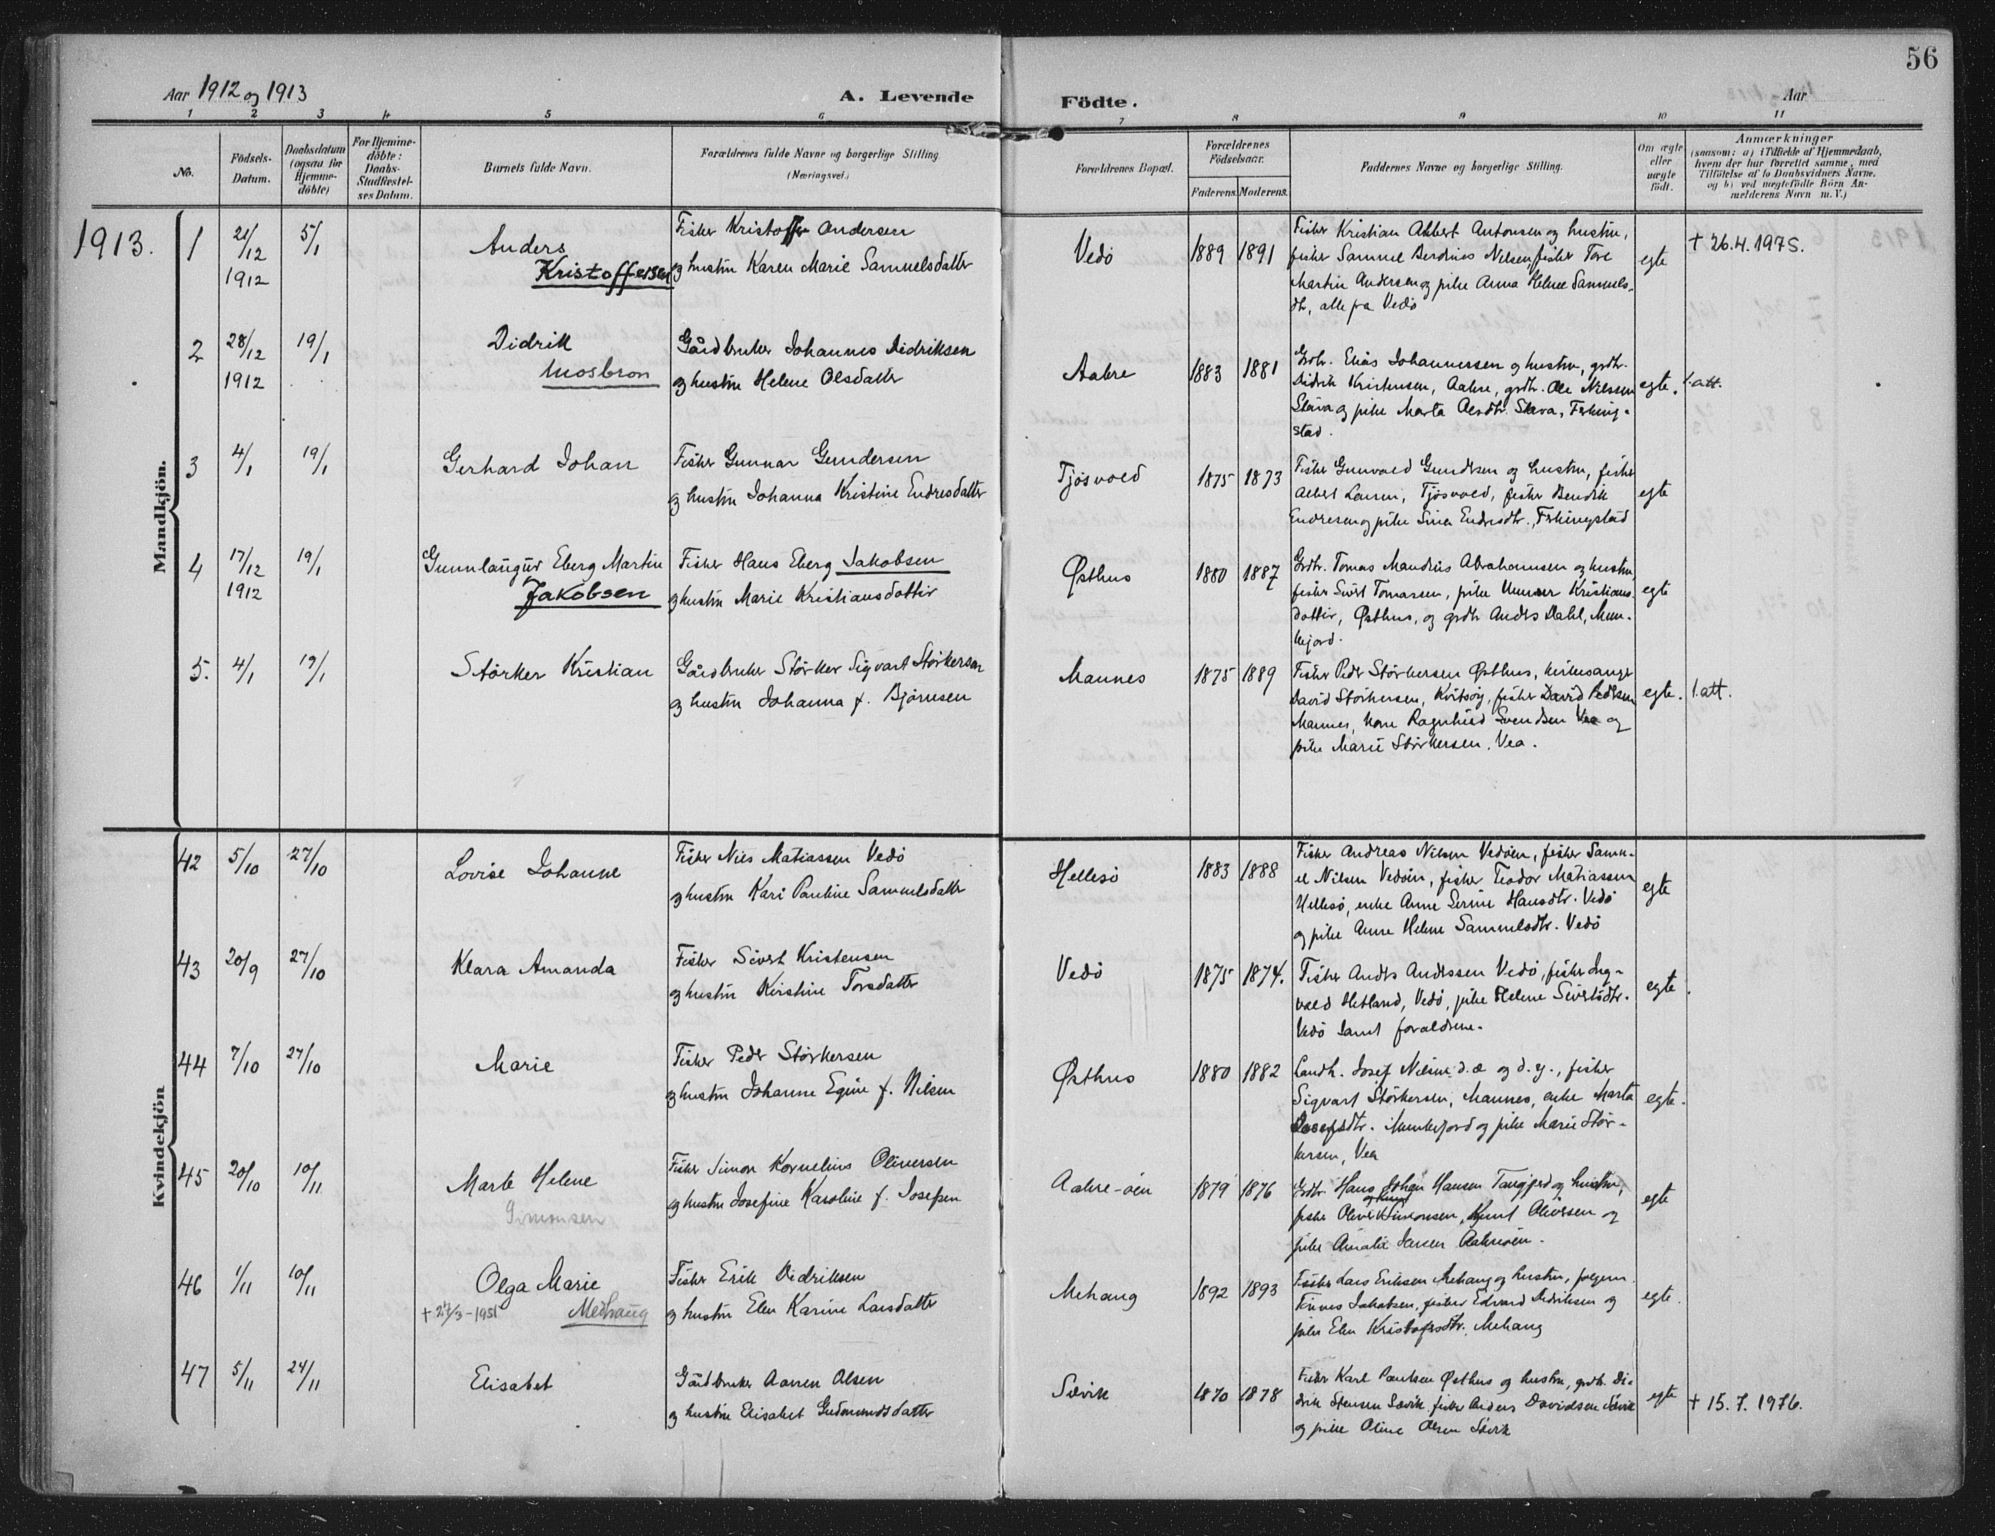 56
Aar 1912 og 1913
A. Levende
Födte.
Aar
1 2 3 4 5 6 7 8 9 10 11
No.
Födsels-
Datum.
Daabsdatum
(ogsaa for
Hjemme-
döbte)
For Hjemme-
döbte:
Daabs-
Stadfæstel-
ses Datum.
Barnets fulde Navn.
Forældrenes fulde Navne og borgerlige Stilling
(Næringsvei.)
Forældrenes Bopæl.
Forældrenes
Födselsaar.
Faderens. Moderens.
Faddernes Navne og borgerlige Stilling.
Om ægte
eller
uægte
födt.
Anmærkninger
(saasom: a) i Tilfælde af Hjemmedaab,
hvem der har forrettet samme, med
Tilföielse af to Daabsvidners Navne,
og b) ved uægtefödte Börn An-
melderens Navn m. V.)
1913.
Mandkjön.
1
21/12
1912
5/1
Anders
Kristoffersen
Fisker Kristoffer Andersen
og hustru Karen Marie Samuelsdatter
Vedö
1889 1891
Fisker Kristian Albert Antonsen og hustru,
fisker Samuel Nilsen, fisker Tore
Martin Andersen og pike Anna Helene Samuels-
dtr, alle fra Vedö
egte
† 26.4.1975.
2
28/12
1912
19/1
Didrik
Mosbron
Gårdbruker Johannes Didriksen
og hustru Helene Olsdatter
Aakre
1883 1881
Grdbr. Elias Johannessen og hustru, grdbr.
Didrik Kristensen, Aakre, grdbr. Ole Nilssen
Stava og pike Marta Olsdtr. Stava, Ferking-
stad.
egte.
1. att.
3
4/1
19/1
Gerhard Johan
Fisker Gunnar Gundersen
og hustru Johanna Kristine Endresdatter
Tjösvold
1875 1873
Fisker Gunvald Gundersen og hustru, fisker
Albert Larsen, Tjösvold, fisker Bendik
Endresen og pike Sina Endresdtr., Ferkingstad
egte
4
17/12
1912
19/1
Gunnlaugur Eberg Martin
Jakobsen
Fisker Hans Eberg Jakobsen
og hustru Marie Kristiansdotter
Østhus
1880 1887
Grdbr. Tomas Mandrus Abrahamsen og hustru,
fisker Sivert Tomassen, pike Kristians-
dotter, Østhus, og grdbr Anders Dahl, Mun-
kejord.
egte
5.
4/1
19/1
Störker Kristian
Gårdbruker Störker Sigvart Störkersen
og hustru Johanna f. Björnsen
Mannes
1875 1889
Fisker Peder Störkersen Østhus, kirkesanger
David Störkersen, Kvitsöy, fisker David Pedersen
Mannes, kone Ragnhild Svendsen Vea og
pike Marie Störkersen. Vea.
egte.
1. att.
Kvindekjön
42
5/10
27/10
Lovise Johanne
Fisker Nils Matiassen Vedö
og hustru Kari Pauline Samuelsdatter
Hellesö
1883 1888
Fisker Andreas Nilsen Vedöen, fisker Samu-
el Nilsen Vedöen, fisker Teodor Matiassen
Hellesö, enke Anne Serine Hansdtr. Vedö
og pike Anne Helene Samuelsdtr. Vedö
egte
43
20/9
27/10
Klara Amanda
Fisker Sivert Kristensen
og hustru Kirstine Torsdatter
Vedö
1875 1874.
Fisker Anders Anderssen Vedö, fisker Ing-
vald Hetland, Vedö, pike Helene Sivertsdtr.
Vedö samt forældrene.
egte.
44
7/10
27/10
Marie
Fisker Peder Störkersen
og hustru Johanne Egine f. Nilsen
Østhus
1880 1882
Landh. Josef Nilsen d.æ og d.y., fisker
Sigvart Störkersen, Mannes, enke Marta
Josefsdtr. Munkejord og pike Marie Stör-
kersen, Vea
egte.
45
20/10
10/11
Marte Helene
Simonsen
Fisker Simon Kornelius Oliversen
og hustru Josefine Karoline f. Josefsen
Aakre-öen
1879 1876
Grdbr. Hans Johan Hansen Tangjerd og hustru,
fisker Oliver Simonsen og hustru, Knut Oliversen og
pike Amalie Jensen Aakreöen.
egte
46
1/11
10/11
Olga Marie
† 27/3 - 1951 Medhaug
Fisker Erik Didriksen
og hustru Elen Karine Larsdatter
Mehaug
1892 1893
Fisker Lars Eriksen Mehaug og hustru,
Tönnes Jakobsen, fisker Edvard Didriksen og
pike Elen Kristofersdtr. Mehaug
egte.
47
5/11
24/11
Elisabet
Gårdbruker Aanen Olsen
og hustru Elisabet Gudmundsdatter
Sævik
1870 1878
Fisker Karl Paulsen Østhus og hustru, grdbr. Di-
drik Stensen Sævik, fisker Anders Davidsen Sævik
og pike Oline Olsen Sævik
egte
† 15.7.1976.